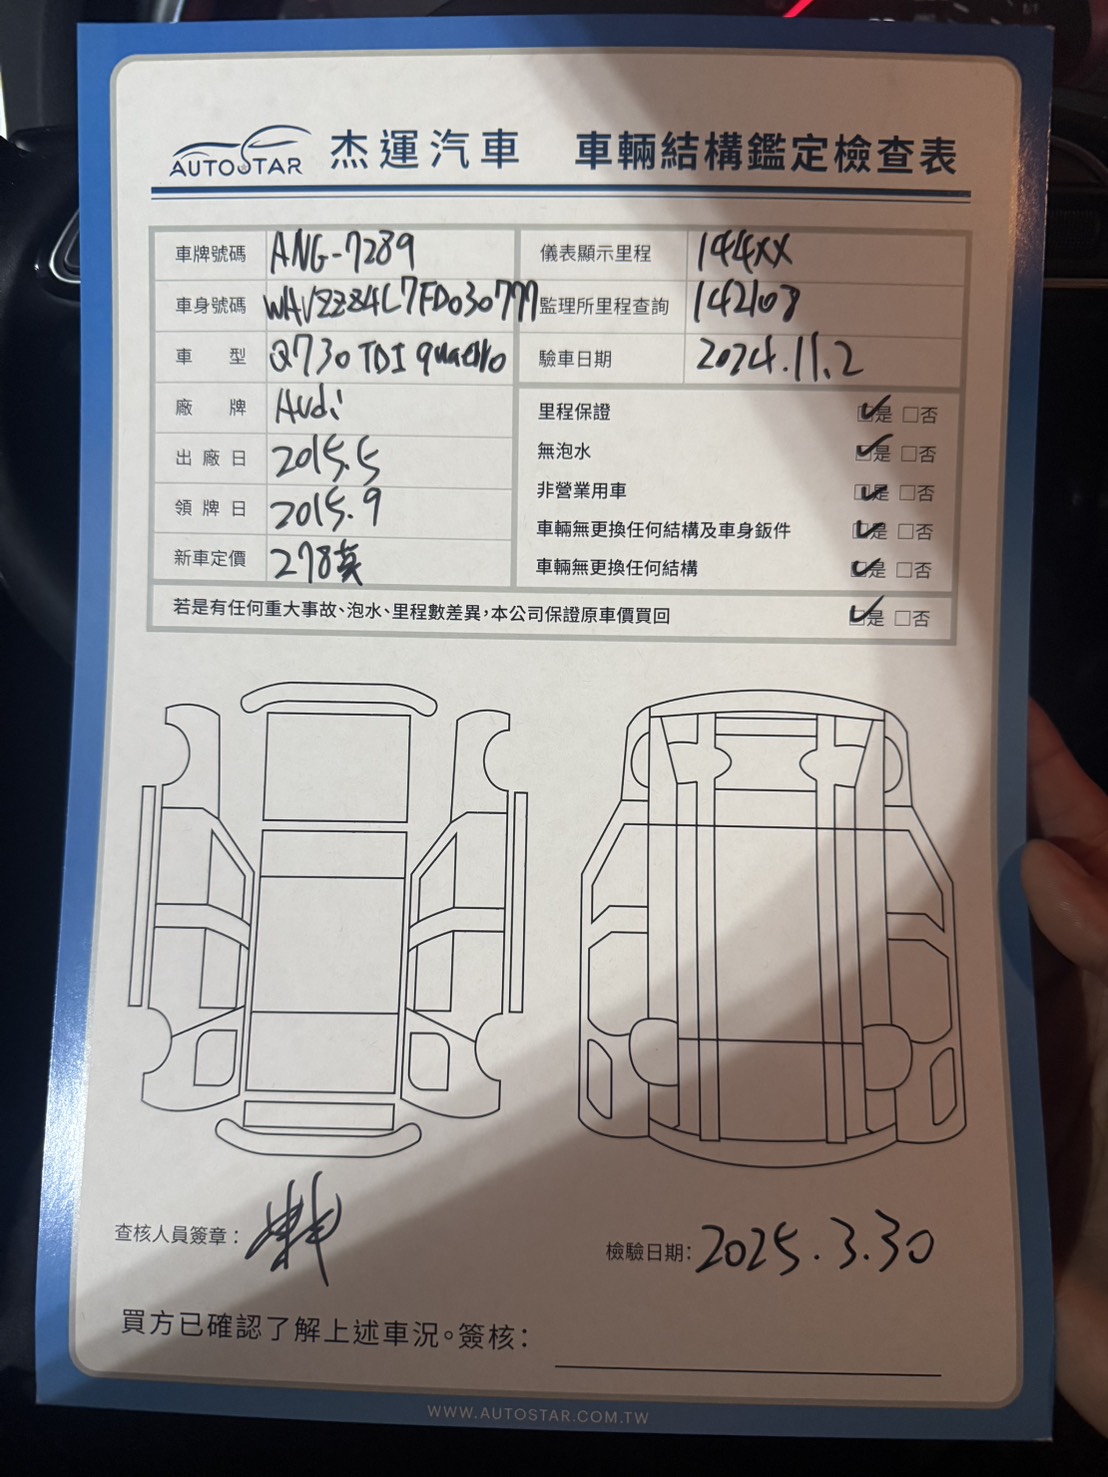 AUTOSTAR 杰運汽車 車輛結構鑑定檢查表
車牌號碼 ANG-7289 儀表顯示里程 144XX
車身號碼 WAVZZZ4L7FD030777 監理所里程查詢 142108
車型 Q7 30 TDI quattro 驗車日期 2024.11.2
廠牌 Audi
出廠日 2015.5
領牌日 2015.9
新車定價 278萬
里程保證 ☑是 □否
無泡水 ☑是 □否
非營業用車 ☑是 □否
車輛無更換任何結構及車身鈑件 ☑是 □否
車輛無更換任何結構 ☑是 □否
若是有任何重大事故、泡水、里程數差異，本公司保證原車價買回 ☑是 □否
查核人員簽章：
檢驗日期：2025.3.30
買方已確認了解上述車況。簽核：
WWW.AUTOSTAR.COM.TW